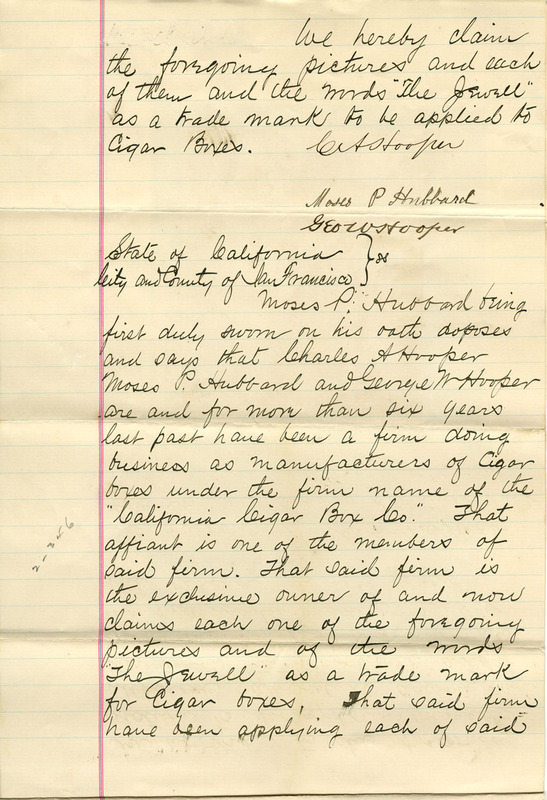 We hereby claim
the foregoing pictures and each
of them and the words "The Jewell"
as a trade mark to be applied to
Cigar Boxes. C A Hooper
Moses P Hubbard
Geo W Hooper
State of California
City and County of San Francisco } ss
Moses P. Hubbard being
first duly sworn on his oath deposes
and says that Charles A Hooper
Moses P. Hubbard and George W Hooper
are and for more than six years
last past have been a firm doing
business as manufacturers of Cigar
boxes under the firm name of the
"California Cigar Box Co." That
affiant is one of the members of
said firm. That said firm is
the exclusive owner of and now
claims each one of the foregoing
pictures and of the words
"The Jewell" as a trade mark
for Cigar boxes. That said firm
have been applying each of said
2-246